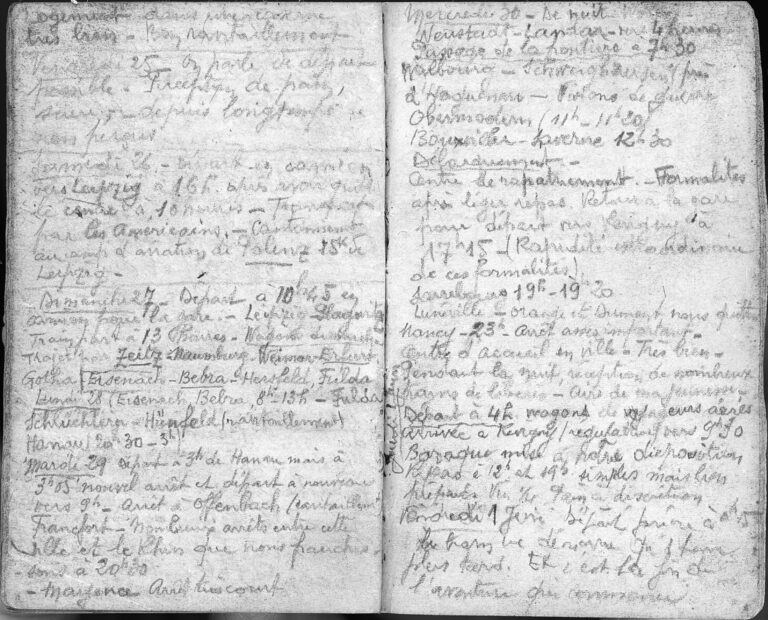 Logement dans une caserne
très bien - Bon ravitaillement
Vendredi 25 - On parle de départ
possible - de pain,
sucre, - depuis longtemps
non perçus
Samedi 26 - Départ en camion
vers Leipzig à 16h. après avoir quitté
le centre à 10 heures - Transport
par les Américains. - Cantonnement
au camp d'aviation de Polenz 25K de
Leipzig -
Dimanche 27 - Départ à 10h45 en
camion pour la gare. - Leipzig -
Train part à 13 heures - Wagons
Trajet par Zeitz - Naumburg - Weimar - Erfurt
Gotha Eisenach - Bebra - Hersfeld, Fulda
Lundi 28 (Eisenach, Bebra, 8h - 13h - Fulda
Schlüchtern - Hünfeld (ravitaillement)
Hanau (20h30 - 3h)
Mardi 29 Départ à 3h de Hanau mais à
3h05 nouvel arrêt et départ à nouveau
vers 9h - Arrêt à Offenbach (ravitaillement
Francfort - Nombreux arrêts entre cette
ville et le Rhin que nous franchis-
sons à 20h30
- Mayence Arrêt très court
Mercredi 30 - De nuit
Neustadt - Landau - vers 4 heures
Passage de la frontière à 7h30
Walbourg - Schweighausen, près
d'Haguenau - Visions de guerre
Obermodern (11h - 11h20)
Bouxwiller - Saverne 12h30
Débarquement -
Centre de rapatriement. - Formalités
après léger repas. Retour à la gare
pour départ vers Revigny à
17h15 - (Rapidité extraordinaire
de ces formalités)
Sarrebourg 19h - 19h20
Lunéville - orange et Dumont nous quittent
Nancy - 23h - Arrêt assez important -
Centre d'Accueil en ville - Très bien -
Pendant la nuit, réception de nombreux
trains de - Airs de ma jeunesse -
Jeudi
Départ à 4h wagons de voyageurs aérés
arrivée à Revigny (régulation) vers 9h30
Baraque mise à notre disposition
Repas à 12h et 19h simples mais bien
préparés à discrétion
Vendredi 1 Juin Départ
le train ne démarre
plus tard. Et c'est la fin de
l'aventure qui commence